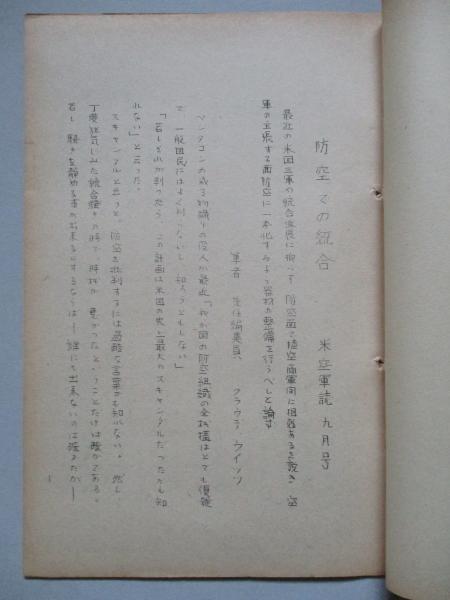 防空での統合
米空軍誌 九月号
最近の米国三軍の統合進展に拘らず 防空面で陸空両軍間に相剋あるを説き 空
軍の主張する面防空に一本化すべきで器材の整備を行うべしと論ず
筆者 主任編集員 クラウデ ウイツツ
ペンタゴンの或る物識りの役人が最近「我が国の防空組織の全機構はとても複雑
で 一般国民にはよく判らないし 知ろうともしない」
「若しそれが判ったら、この計画は米国の史上最大のスキャンダルだったかも知
れない」と言った。
スキャンダルと言うと、防空を批判するには過酷な言葉かも知れない。 然し、
丁度狂気じみた統合騒ぎの時で、時機が悪かったということだけは確かである。
若し 騒ぎを静める事が出来るとするならば― 誰にも出来ないのは確だが―